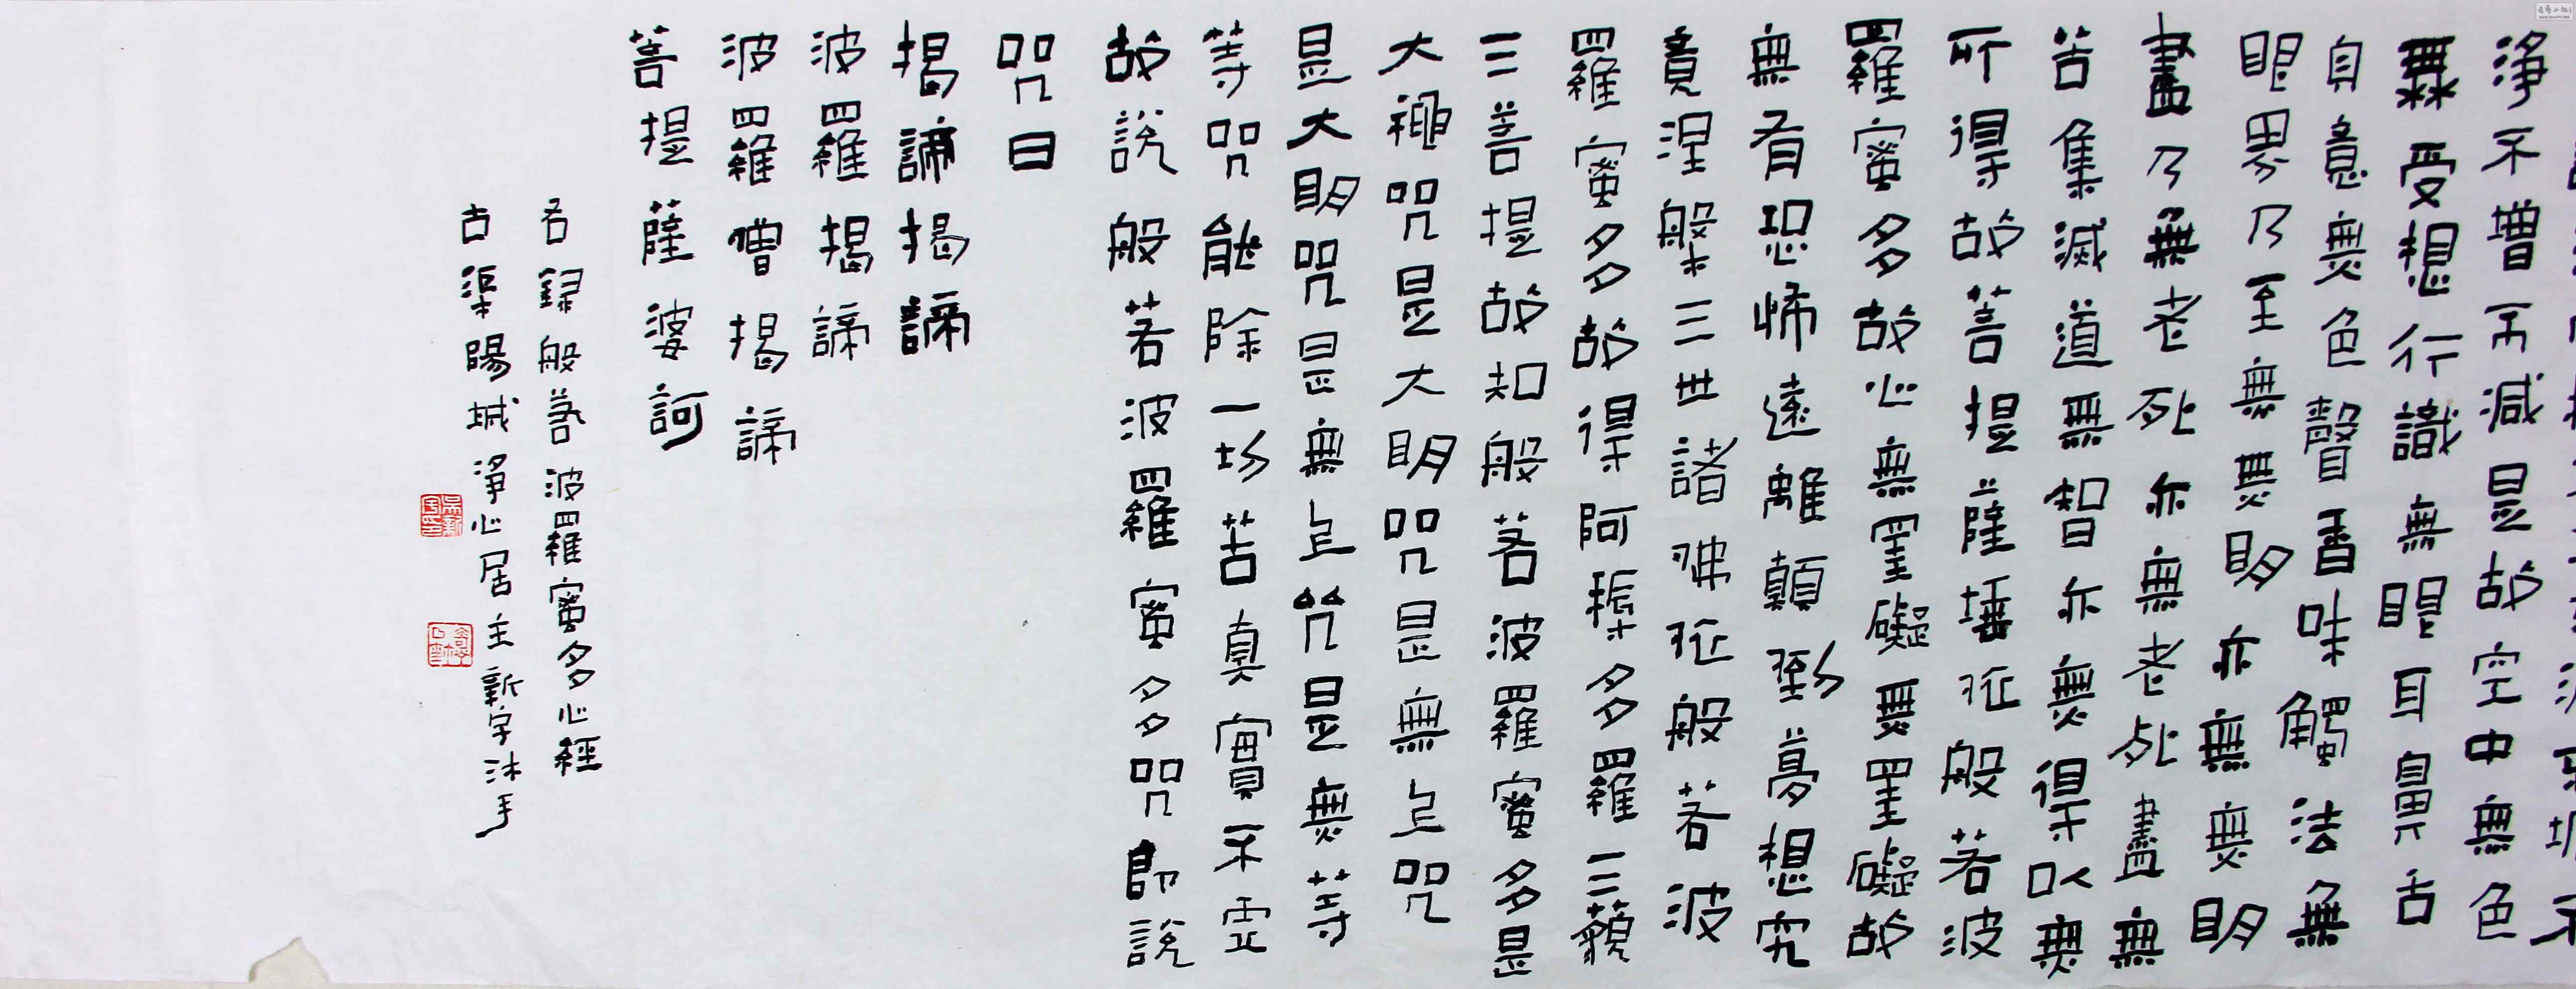 淨不增不減是故空中無色
無受想行識無眼耳鼻舌
身意無色聲香味觸法無
眼界乃至無無明亦無無明
盡乃無老死亦無老死盡無
苦集滅道無智亦無得以無
所得故菩提薩埵依般若波
羅蜜多故心無罣礙無罣礙故
無有恐怖遠離顛到夢想究
竟涅槃三世諸佛依般若波
羅蜜多故得阿耨多羅三藐
三菩提故知般若波羅蜜多是
大神咒是大明咒是無上咒
是大明咒是無上咒是無等
等咒能除一切苦真實不虛
故說般若波羅蜜多咒即說
咒曰
揭諦揭諦
波羅揭諦
波羅僧揭諦
菩提薩婆訶
右録般若波羅蜜多心經
古渠陽城淨心居主新宇沐手